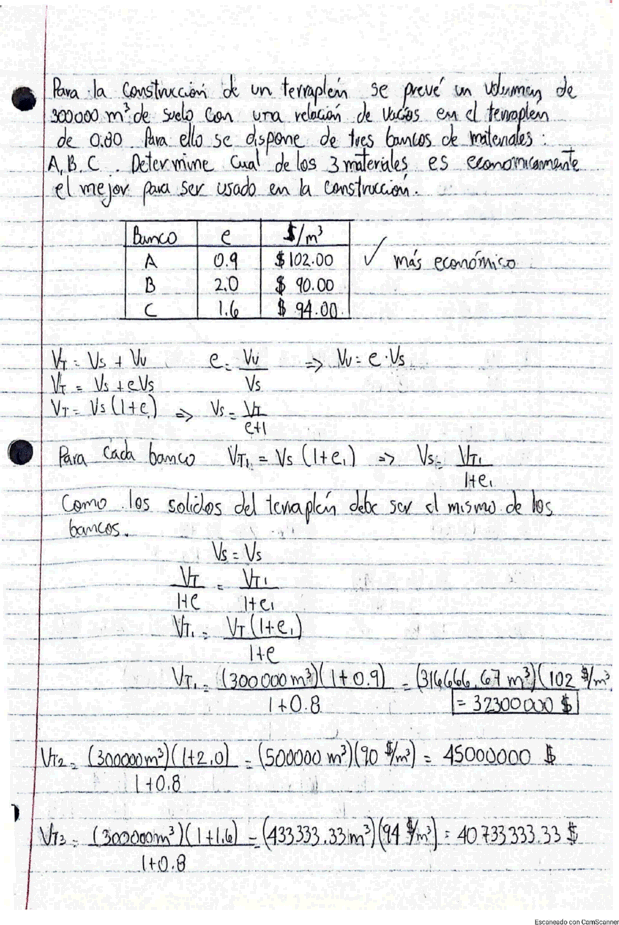 Para la construcción de un terraplén se prevé un volumen de
300000 m³ de suelo con una relación de vacíos en el terraplen
de 0.80. Para ello se dispone de tres bancos de materiales:
A, B, C. Determine cual de los 3 materiales es economicamente
el mejor para ser usado en la construcción.
Banco e $/m³
A 0.9 $102.00 ✓ más económico
B 2.0 $ 90.00
C 1.6 $ 94.00
V_T = Vs + Vv e = Vv/Vs => Vv = e·Vs
V_T = Vs + eVs
V_T = Vs(1+e) => Vs = V_T/e+1
Para cada banco V_T1 = Vs (1+e₁) => Vs = V_T1/1+e₁
Como los solidos del terraplén debe ser el mismo de los
bancos.
Vs = Vs
V_T/1+e = V_T1/1+e₁
V_T1 = V_T(1+e₁)/1+e
V_T1 = (300000 m³)(1+0.9)/1+0.8 = (316666.67 m³)(102 $/m³
= 32300000 $
V_T2 = (300000m³)(1+2.0)/1+0.8 = (500000 m³)(90 $/m³) = 45000000 $
V_T3 = (300000m³)(1+1.6)/1+0.8 = (433333.33m³)(94 $/m³) = 40733333.33 $
Escaneado con CamScanner